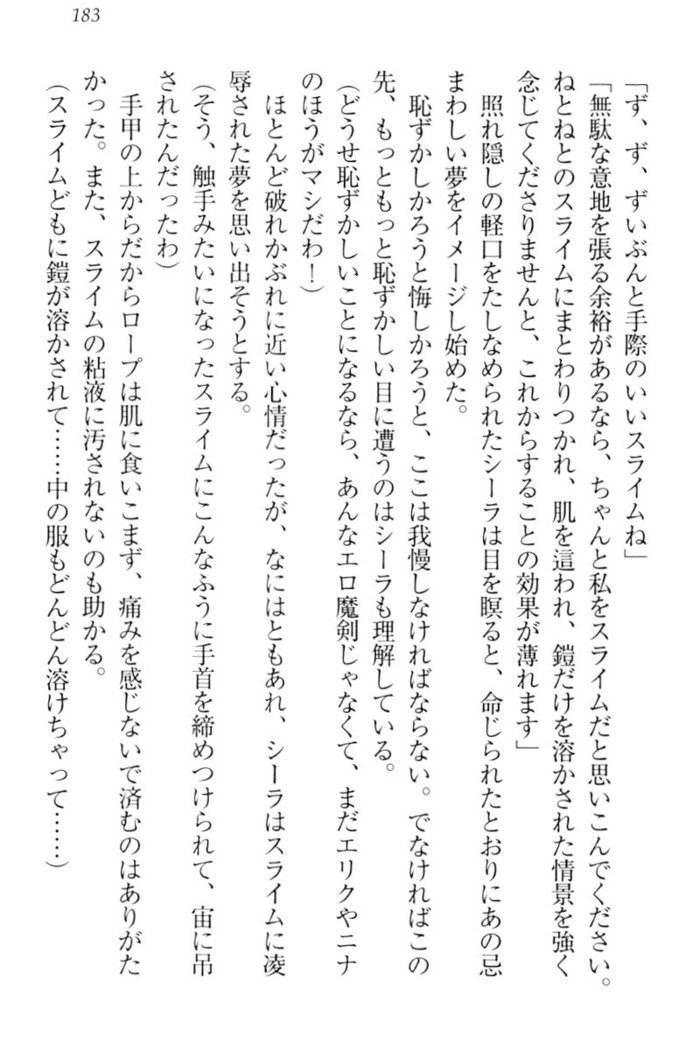 183
「ず、ず、ずいぶんと手際のいいスライムね」
「無駄な意地を張る余裕があるなら、ちゃんと私をスライムだと思いこんでください。
ねとねとのスライムにまとわりつかれ、肌を這われ、鎧だけを溶かされた情景を強く
念じてくださりませんと、これからすることの効果が薄れます」
照れ隠しの軽口をたしなめられたシーラは目を瞑ると、命じられたとおりにあの忌
まわしい夢をイメージし始めた。
恥ずかしかろうと悔しかろうと、ここは我慢しなければならない。でなければこの
先、もっともっと恥ずかしい目に遭うのはシーラも理解している。
（どうせ恥ずかしいことになるなら、あんなエロ魔剣じゃなくて、まだエリクやニナ
のほうがマシだわ！）
ほとんど破れかぶれに近い心情だったが、なにはともあれ、シーラはスライムに凌
辱された夢を思い出そうとする。
（そう、触手みたいになったスライムにこんなふうに手首を締めつけられて、宙に吊
されたんだったわ）
手甲の上からだからロープは肌に食いこまず、痛みを感じないで済むのはありがた
かった。また、スライムの粘液に汚されないのも助かる。
（スライムどもに鎧が溶かされて……中の服もどんどん溶けちゃって……）